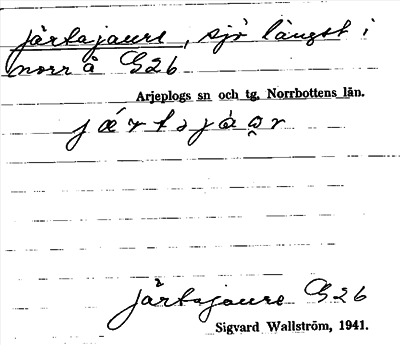 Järtajaure, sjö längst i
norr å G26
Arjeplogs sn och tg, Norrbottens län.
Järtajaure G26
Sigvard Wallström, 1941.